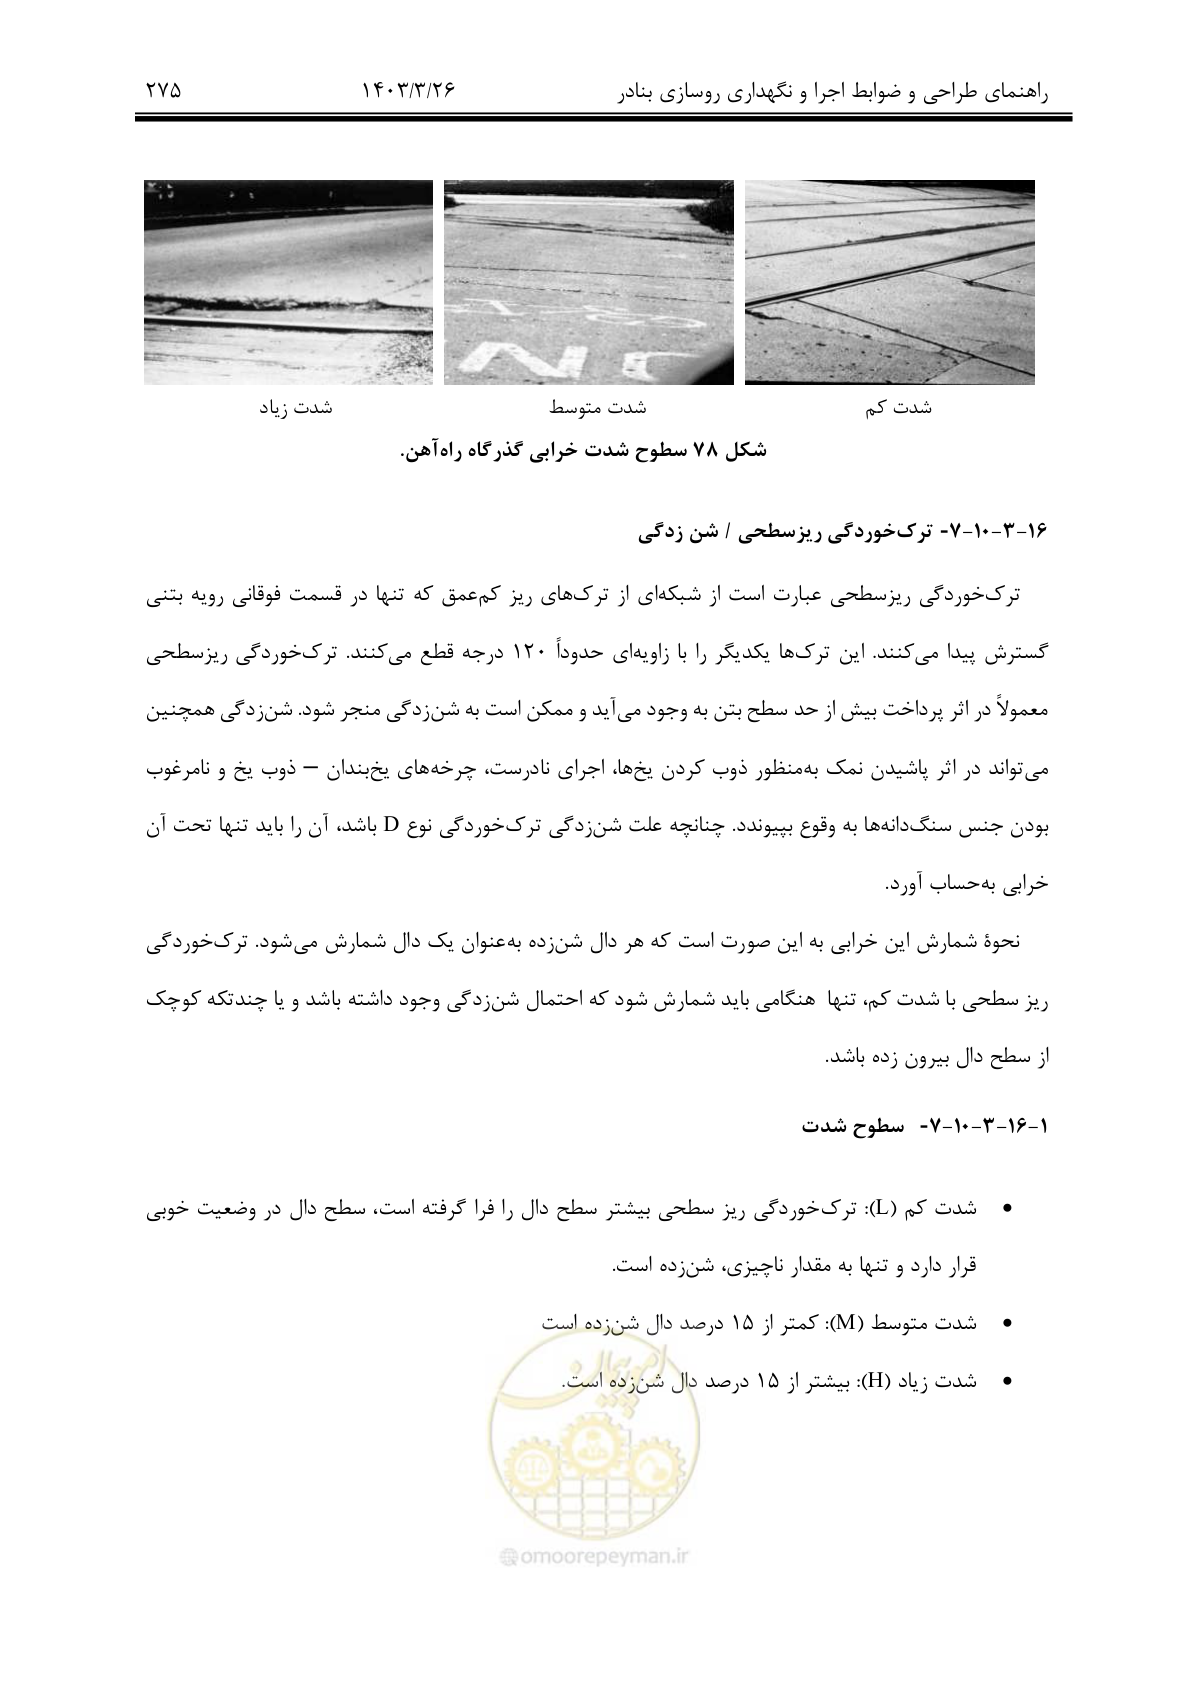 راهنمای طراحی و ضوابط اجرا و نگهداری روسازی بنادر ۱۴۰۳/۳/۲۶ ۲۷۵
شدت کم شدت متوسط شدت زیاد
شکل ۷۸ سطوح شدت خرابی گذرگاه راه‌آهن.
۷-۱۰-۳-۱۶- ترک‌خوردگی ریزسطحی / شن زدگی
ترک‌خوردگی ریزسطحی عبارت است از شبکه‌ای از ترک‌های ریز کم‌عمق که تنها در قسمت فوقانی رویه بتنی
گسترش پیدا می‌کنند. این ترک‌ها یکدیگر را با زاویه‌ای حدوداً ۱۲۰ درجه قطع می‌کنند. ترک‌خوردگی ریزسطحی
معمولاً در اثر پرداخت بیش از حد سطح بتن به وجود می‌آید و ممکن است به شن‌زدگی منجر شود. شن‌زدگی همچنین
می‌تواند در اثر پاشیدن نمک به‌منظور ذوب کردن یخ‌ها، اجرای نادرست، چرخه‌های یخ‌بندان – ذوب یخ و نامرغوب
بودن جنس سنگ‌دانه‌ها به وقوع بپیوندد. چنانچه علت شن‌زدگی ترک‌خوردگی نوع D باشد، آن را باید تنها تحت آن
خرابی به‌حساب آورد.
نحوهٔ شمارش این خرابی به این صورت است که هر دال شن‌زده به‌عنوان یک دال شمارش می‌شود. ترک‌خوردگی
ریز سطحی با شدت کم، تنها هنگامی باید شمارش شود که احتمال شن‌زدگی وجود داشته باشد و یا چندتکه کوچک
از سطح دال بیرون زده باشد.
۷-۱۰-۳-۱۶-۱- سطوح شدت
• شدت کم (L): ترک‌خوردگی ریز سطحی بیشتر سطح دال را فرا گرفته است، سطح دال در وضعیت خوبی
قرار دارد و تنها به مقدار ناچیزی، شن‌زده است.
• شدت متوسط (M): کمتر از ۱۵ درصد دال شن‌زده است
• شدت زیاد (H): بیشتر از ۱۵ درصد دال شن‌زده است.
امور پیمان
@omoorepeyman.ir